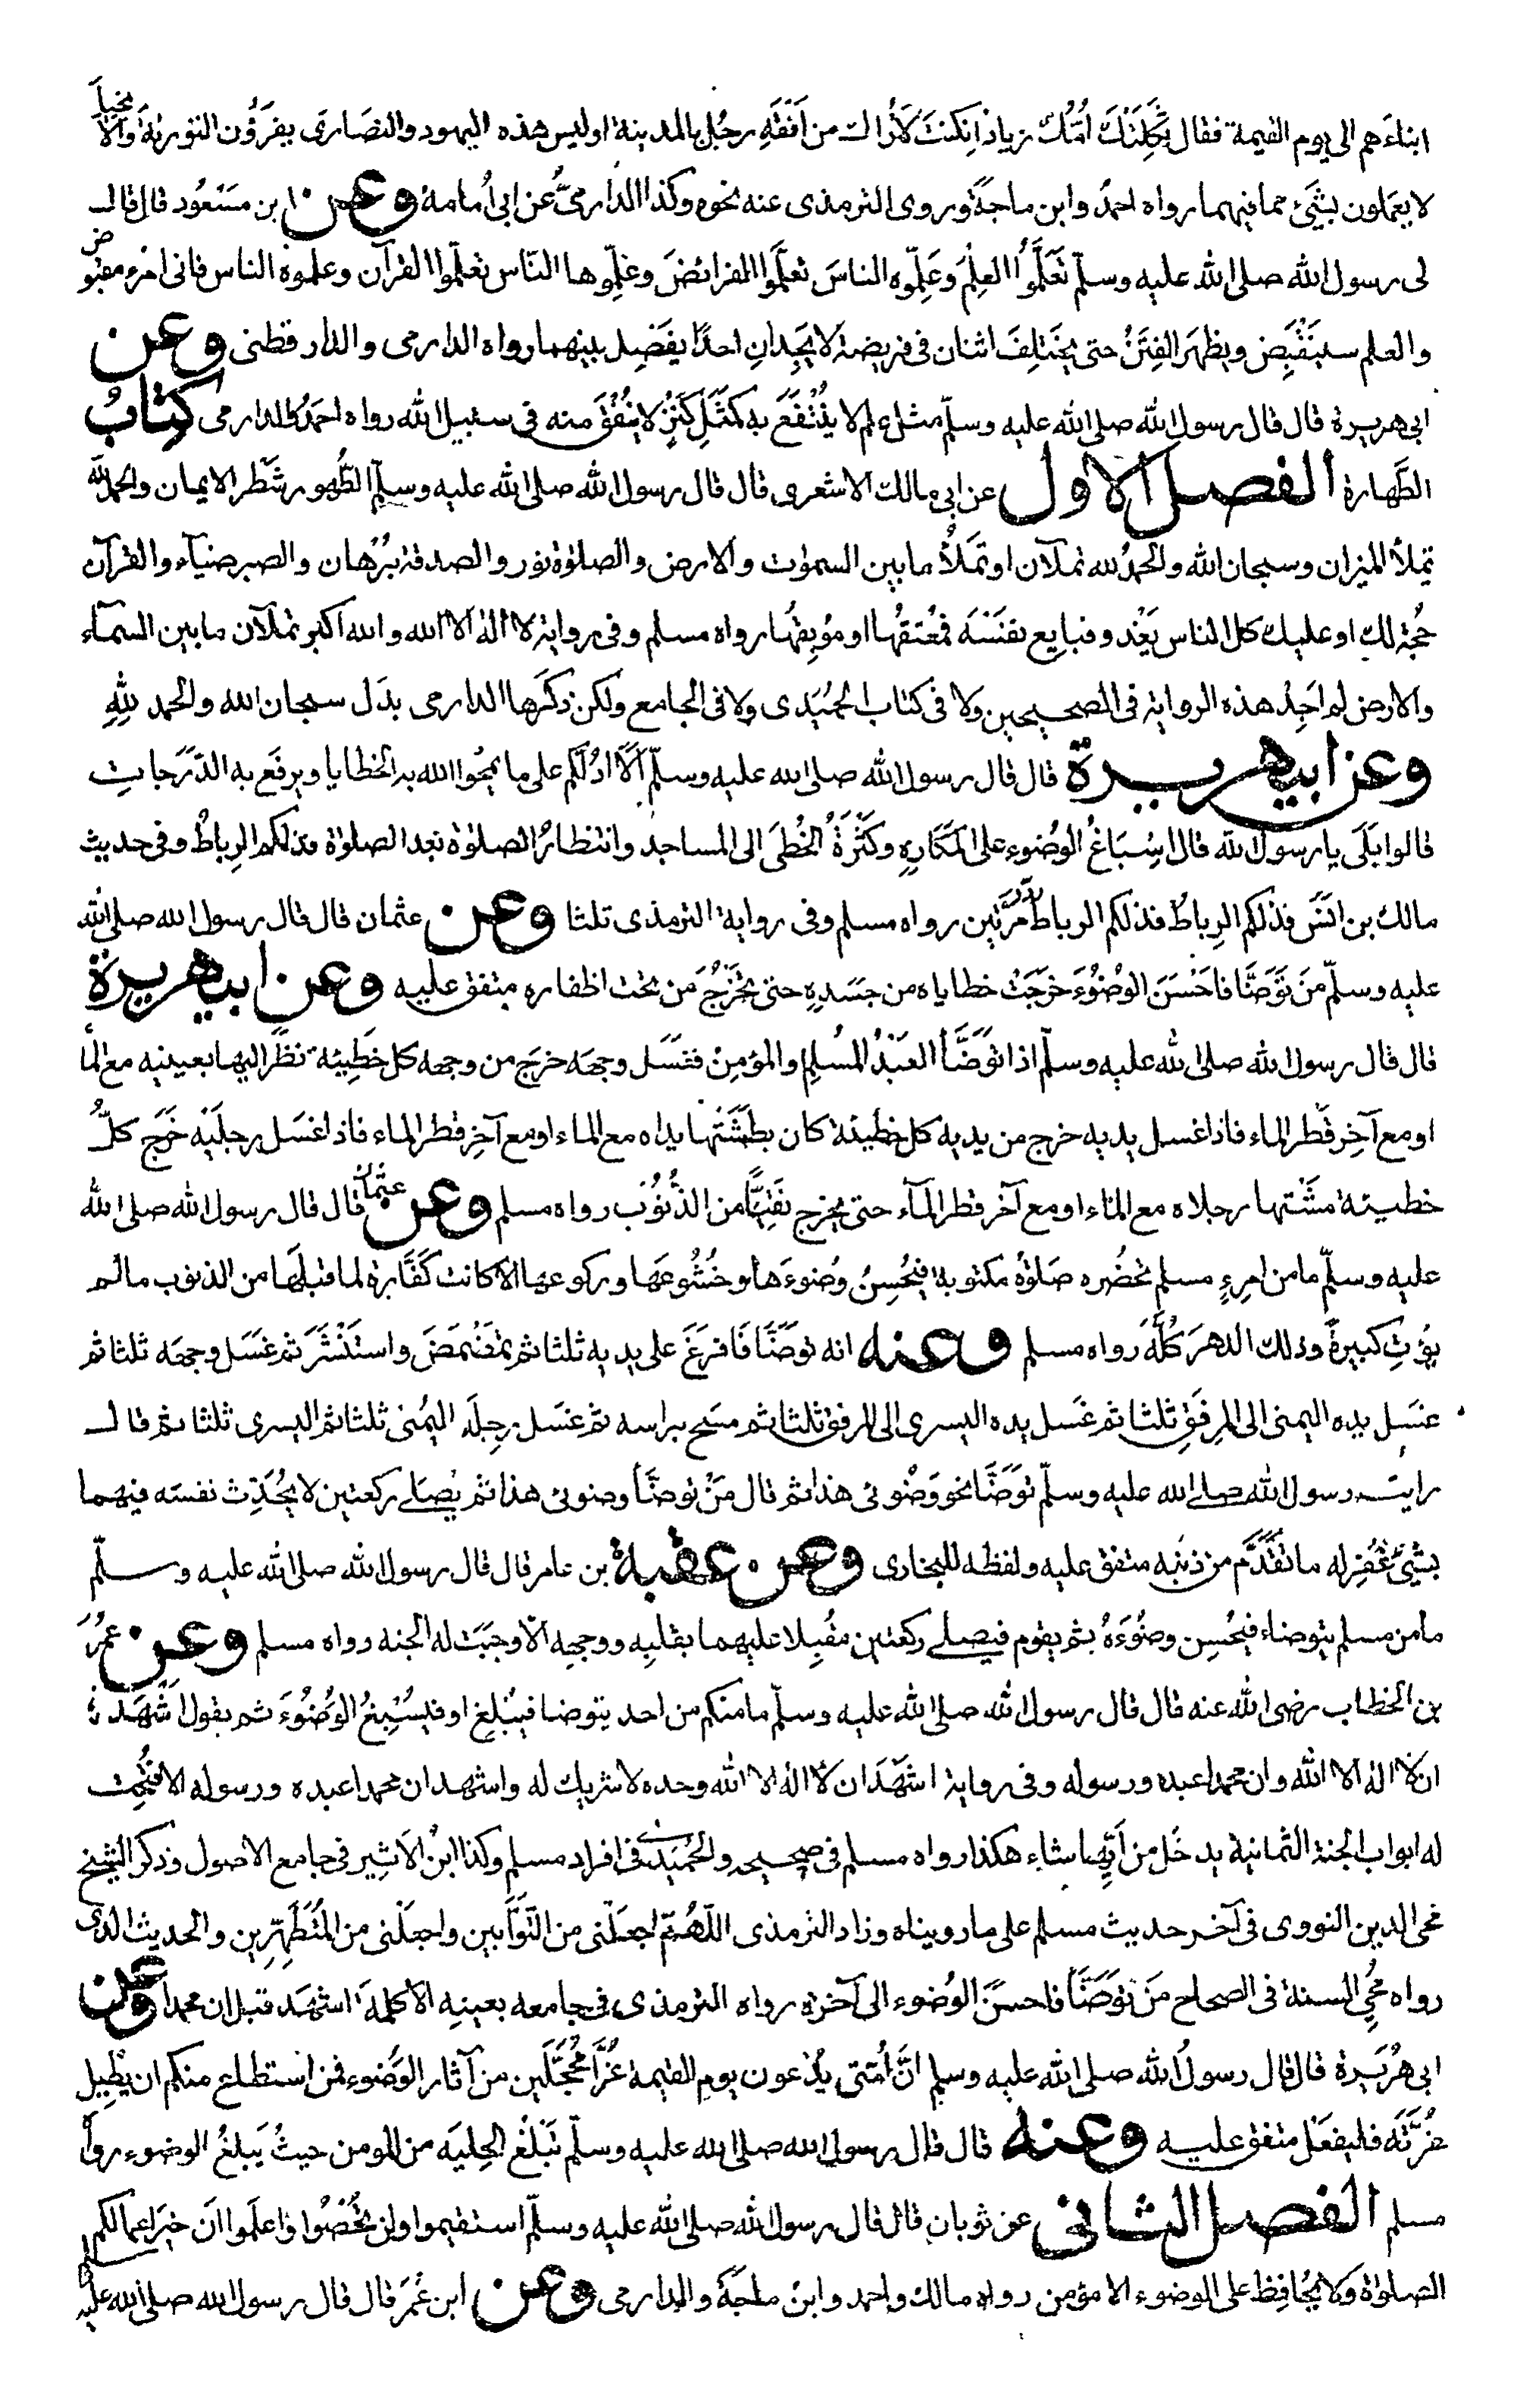 ابناءَهم الى يوم القيمة فقال ثَكِلَتْكَ اُمُّك زياد اِنكنتَ لَاَرُاك من اَفْقَهِ رجُلٍ بالمدينة اوليس هذه اليهود والنصَارى يقرَؤُن التوريةَ والانجيلَ
لا يعمَلون بشَيْئ مما فيهما رواه احمدُ وابن ماجةَ وروى الترمذى عنه نحوه وكذا الدارمىُّ عن ابى اُمامة وعن ابن مسَعُود قال قال
لى رسول الله صلى الله عليه وسلّم تعَلَّمُوا العِلمَ وعَلِّموه الناسَ تعلَّمَوا الفرائضَ وعَلِّموها النّاس تعلّموا القرآن وعلموه الناس فانى امرء مقبوض
والعلم سينَقْبِض ويظهَر الفِتَنُ حتى يختَلِفَ اثنان فى فريضة لا يَجِدانِ احدًا يفَصِل بينهما رواه الدارمى والدار قطنى وعن
ابى هريرة قال قال رسول الله صلى الله عليه وسلّم مثل علم لا يُنْتَفَعَ به كمَثَلِ كَنْزٍ لا يُنْفَقَ منه فى سبيل الله رواه احمَدُ والدارمى كتابُ
الطَّهارة الفصل الاول عن ابى مالك الاشعرى قال قال رسول الله صلى الله عليه وسلم الطُّهور شَطْر الايمان والحمد لله
تملأ الميزان وسبحان الله والحمدُ لله تملآن او تَملَأُ ما بين السموٰت والارض والصلوٰة نور والصدقة بُرْهان والصبر ضيآء والقرآن
حُجة لك او عليك كل الناس يَغْدو فبايِع نفسَه فمُعتقهُا او موُبِقهُا رواه مسلم وفى رواية لا الٰه الا الله والله اكبر تملآن ما بين السمآء
والارض لم اَجِدْ هذه الرواية فى الصحيحين ولا فى كتاب الحُمَيدى ولا فى الجامع ولكن ذكَرها الدارمى بدَل سبحان الله والحمد لِلهِ
وعن ابى هريرة قال قال رسول الله صلى الله عليه وسلّم اَلَا ادُلّكم على ما يمحُوا الله به الخطايا ويرفَع به الدّرَجات
قالوا بَلَى يا رسول الله قال اِسْبَاغُ الوُضُوء على المَكَارِهِ وكَثْرَةُ الخُطَى الى المساجد وانتظارُ الصلوٰة بَعد الصلوٰة فذلكم الرِباطُ وفى حديث
مالك بن انسَ فذلكم الرِباطُ فذلكم الرباط رَدَّدَ مرَّتين رواه مسلم وفى رواية الترمذى ثلثا وعن عثمان قال قال رسول الله صلى الله
عليه وسلّم مَن تَوَضَّا فاَحْسَنَ الوُضُوْءَ خرَجَتْ خطاياه من جسَدِهِ حتى تخَرُجُ مَن تحت اظفاره متفق عليه وعن ابى هريرة
قال قال رسول الله صلى الله عليه وسلّم اذا توَضَّأ العَبْدُ المُسْلِم والمؤمِنُ فغسَل وجهَه خرَج من وجهه كل خطِيئة نظَر اليها بعينيه مع المأ
او مع آخِر قَطر الماء فاذا غسل يديه خرج من يديه كل خطيئة كان بطَشَتْها يداه مع الماء او مع آخِر قطر الماء فاذا غسَل رجلَيْه خرَج كلُّ
خطيئة مشَتْها رجلاه مع الماء او مع آخر قطر المآء حتى يخرج نَقِيًّا من الذُّنُوْب رواه مسلم وعن عثمان قال قال رسول الله صلى الله
عليه وسلّم ما من امرِءٍ مسلم تحضُره صَلوٰةٌ مكتوبة فيُحْسِنُ وُضوءَها وخُشُوعَها وركوعها الا كانت كَفَّارة لما قبلَها من الذنوب ما لم
يؤتِ كبيرةً وذلك الدهرَ كُلَّهَ رواه مسلم وعنه انه توَضَّا فَافرَغَ على يديه ثلثا ثم تمَضْمَضَ واستَنْثَرَ ثم غَسَل وجهَه ثلثا ثم
غسَل يده اليمنى الى المِرفَقِ ثلثا ثم غَسَل يده اليسرى الى المرفق ثلثا ثم مسَح براسه ثم غسَل رِجلَه اليُمنى ثلثا ثم اليسرى ثلثا ثم قال
رايت رسول الله صلى الله عليه وسلّم توَضَّا نحو وَضُوئى هذا ثم قال مَنْ توضّأ وضوئى هذا ثم يصلى ركعتين لا يُحَدِّث نفسَه فيهما
بشيئ غُفِرله ما تقَدَّم من ذنْبه متفق عليه ولفظه للبخارى وعن عقبة بن عامر قال قال رسول الله صلى الله عليه وسلّم
ما من مسلم يتوضاء فيُحسِن وضُوْءَهُ ثم يقوم فيصلى ركعتين مقُبِلا عليهما بقلبِه ووجهِه الّا وجَبَت له الجنة رواه مسلم وعن عمرُ
بن الخطاب رضى الله عنه قال قال رسول الله صلى الله عليه وسلّم ما منكم من احد يتوضا فيُبْلغ او فيسْبِغُ الوُضُوْءَ ثم يقول اشْهَد
ان لا الهٰ الا الله وان محمدا عبده ورسوله وفى رواية اشهَد ان لا الهٰ الا الله وحده لا شريك له واشهد ان محمدا عبده ورسوله الا فتُحِت
له ابواب الجنة الثمانية يدخَل من اَيِّها شاء هكذا رواه مسلم فى صحيحه والحُمَيدى فى افراد مسلم وكذا ابنُ الاَثير فى جامع الاصول وذكر الشيخ
محى الدين النووى فى آخر حديث مسلم على ما رويناه وزاد الترمذى اللّهُمّ اجعَلْنى من التَّوَّابين واجعَلْنى من المُتَطَهِّرِين والحديث الذى
رواه مُحُيِ السنة فى الصحاح مَن توَضَّأ فاحسَنَ الوُضوء الى آخره رواه الترمذى فى جامعه بعينه الا كلمة اشهَد قبل ان محمدا وعن
ابى هُرَيرة قال قال رسولُ الله صلى الله عليه وسلم انَّ اُمَّتى يُدْعون يوم القيمة غُرًّا مُحَجَّلَين من آثار الوَضُوء فمن استطاع منكم ان يُطيل
غُرَّتَه فليفعَل متفق عليه وعنه قال قال رسول الله صلى الله عليه وسلّم تَبْلُغُ الحِليَه من المومن حيثُ يَبلغُ الوضوء رواه
مسلم الفصل الثانى عن ثوبان قال قال رسول الله صلى الله عليه وسلّم استقيموا ولن تُحْصُوا واعلَموا انَ خيَر اعمالكم
الصلوٰة ولا يُحافِظ على الوضوء الا مؤمن رواه مالك واحمد وابن ماجَةَ والدارمى وعن ابن عُمَر قال قال رسول الله صلى الله عليه وسلم